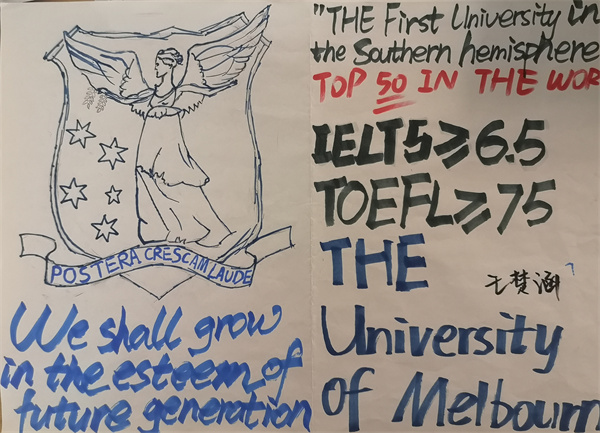 POSTERA CRESCAM LAUDE
We shall grow
in the esteem of
future generation
"THE First University in
the Southern hemisphere
TOP 50 IN THE WOR
IELTS≥6.5
TOEFL≥75
THE
王梦涵
University
of Melbourn